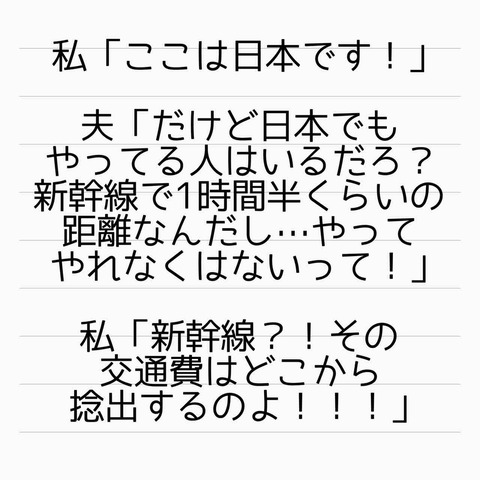 私「ここは日本です！」
夫「だけど日本でも
やってる人はいるだろ？
新幹線で1時間半くらいの
距離なんだし…やって
やれなくはないって！」
私「新幹線？！その
交通費はどこから
捻出するのよ！！！」